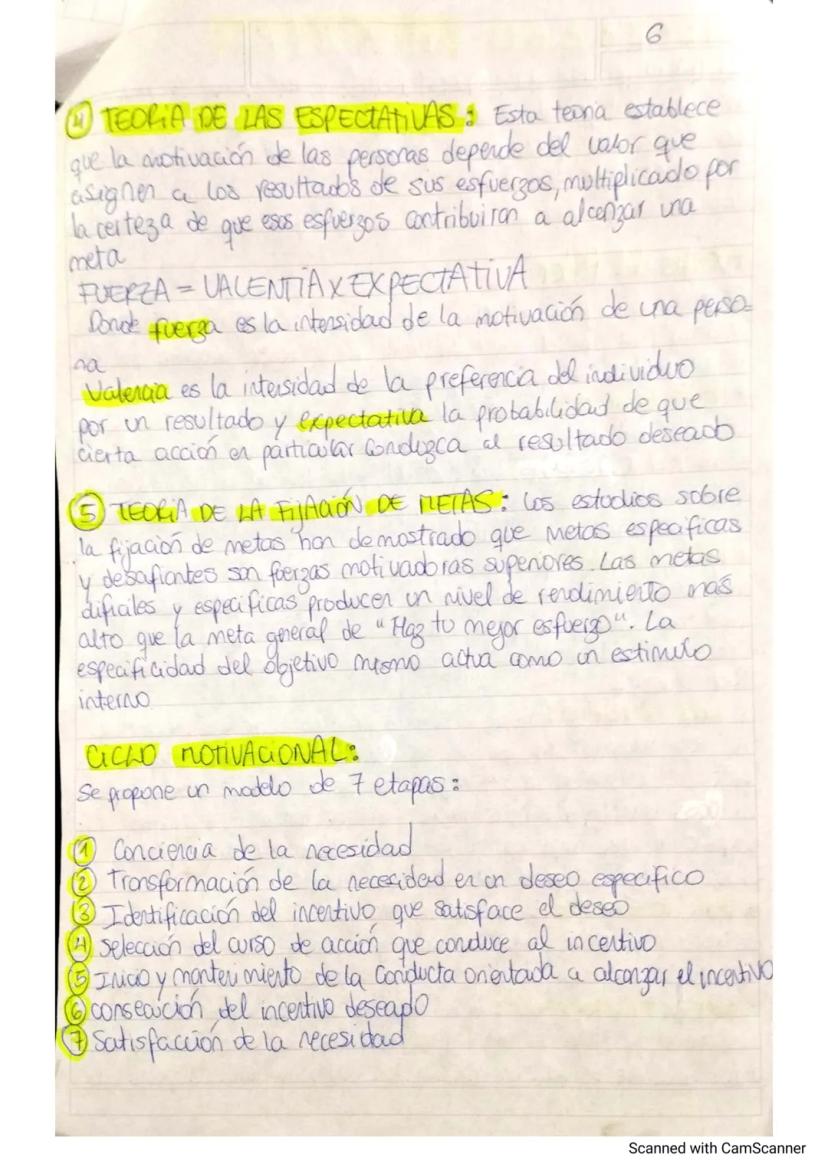 6
4 TEORIA DE LAS ESPECTATIVAS: Esta teoria establece
que la motivación de las personas depende del valor que
asignen a los resultados de sus esfuerzos, multiplicado por
la certeza de que esos esfuerzos contribuiran a alcanzar una
meta
FUERZA = VALENTIA X EXPECTATIVA
Donde fuerza es la intensidad de la motivación de una perso-
na
Valencia es la intensidad de la preferencia del individuo
por un resultado y expectativa la probabilidad de que
cierta acción en particular conduzca al resultado deseado
5 TEORIA DE LA FIJACIÓN DE METAS: Los estudios sobre
la fijación de metas han demostrado que metas especificas
y desafiantes son fuerzas motivadoras superiores. Las metas
dificiles y especificas producen un nivel de rendimiento mas
alto que la meta general de "Haz tu mejor esfuerzo". La
especificidad del objetivo mismo actua como un estimulo
interno
CICLO MOTIVACIONAL:
Se propone un modelo de 7 etapas:
1 Conciencia de la necesidad
2 Transformación de la necesidad en un deseo especifico
3 Identificación del incentivo que satisface el deseo
4 Selección del curso de acción que conduce al incentivo
5 Inicio y mantenimiento de la conducta orientada a alcanzar el incentivo
6 consecución del incentivo deseado
7 Satisfacción de la necesidad
Scanned with CamScanner